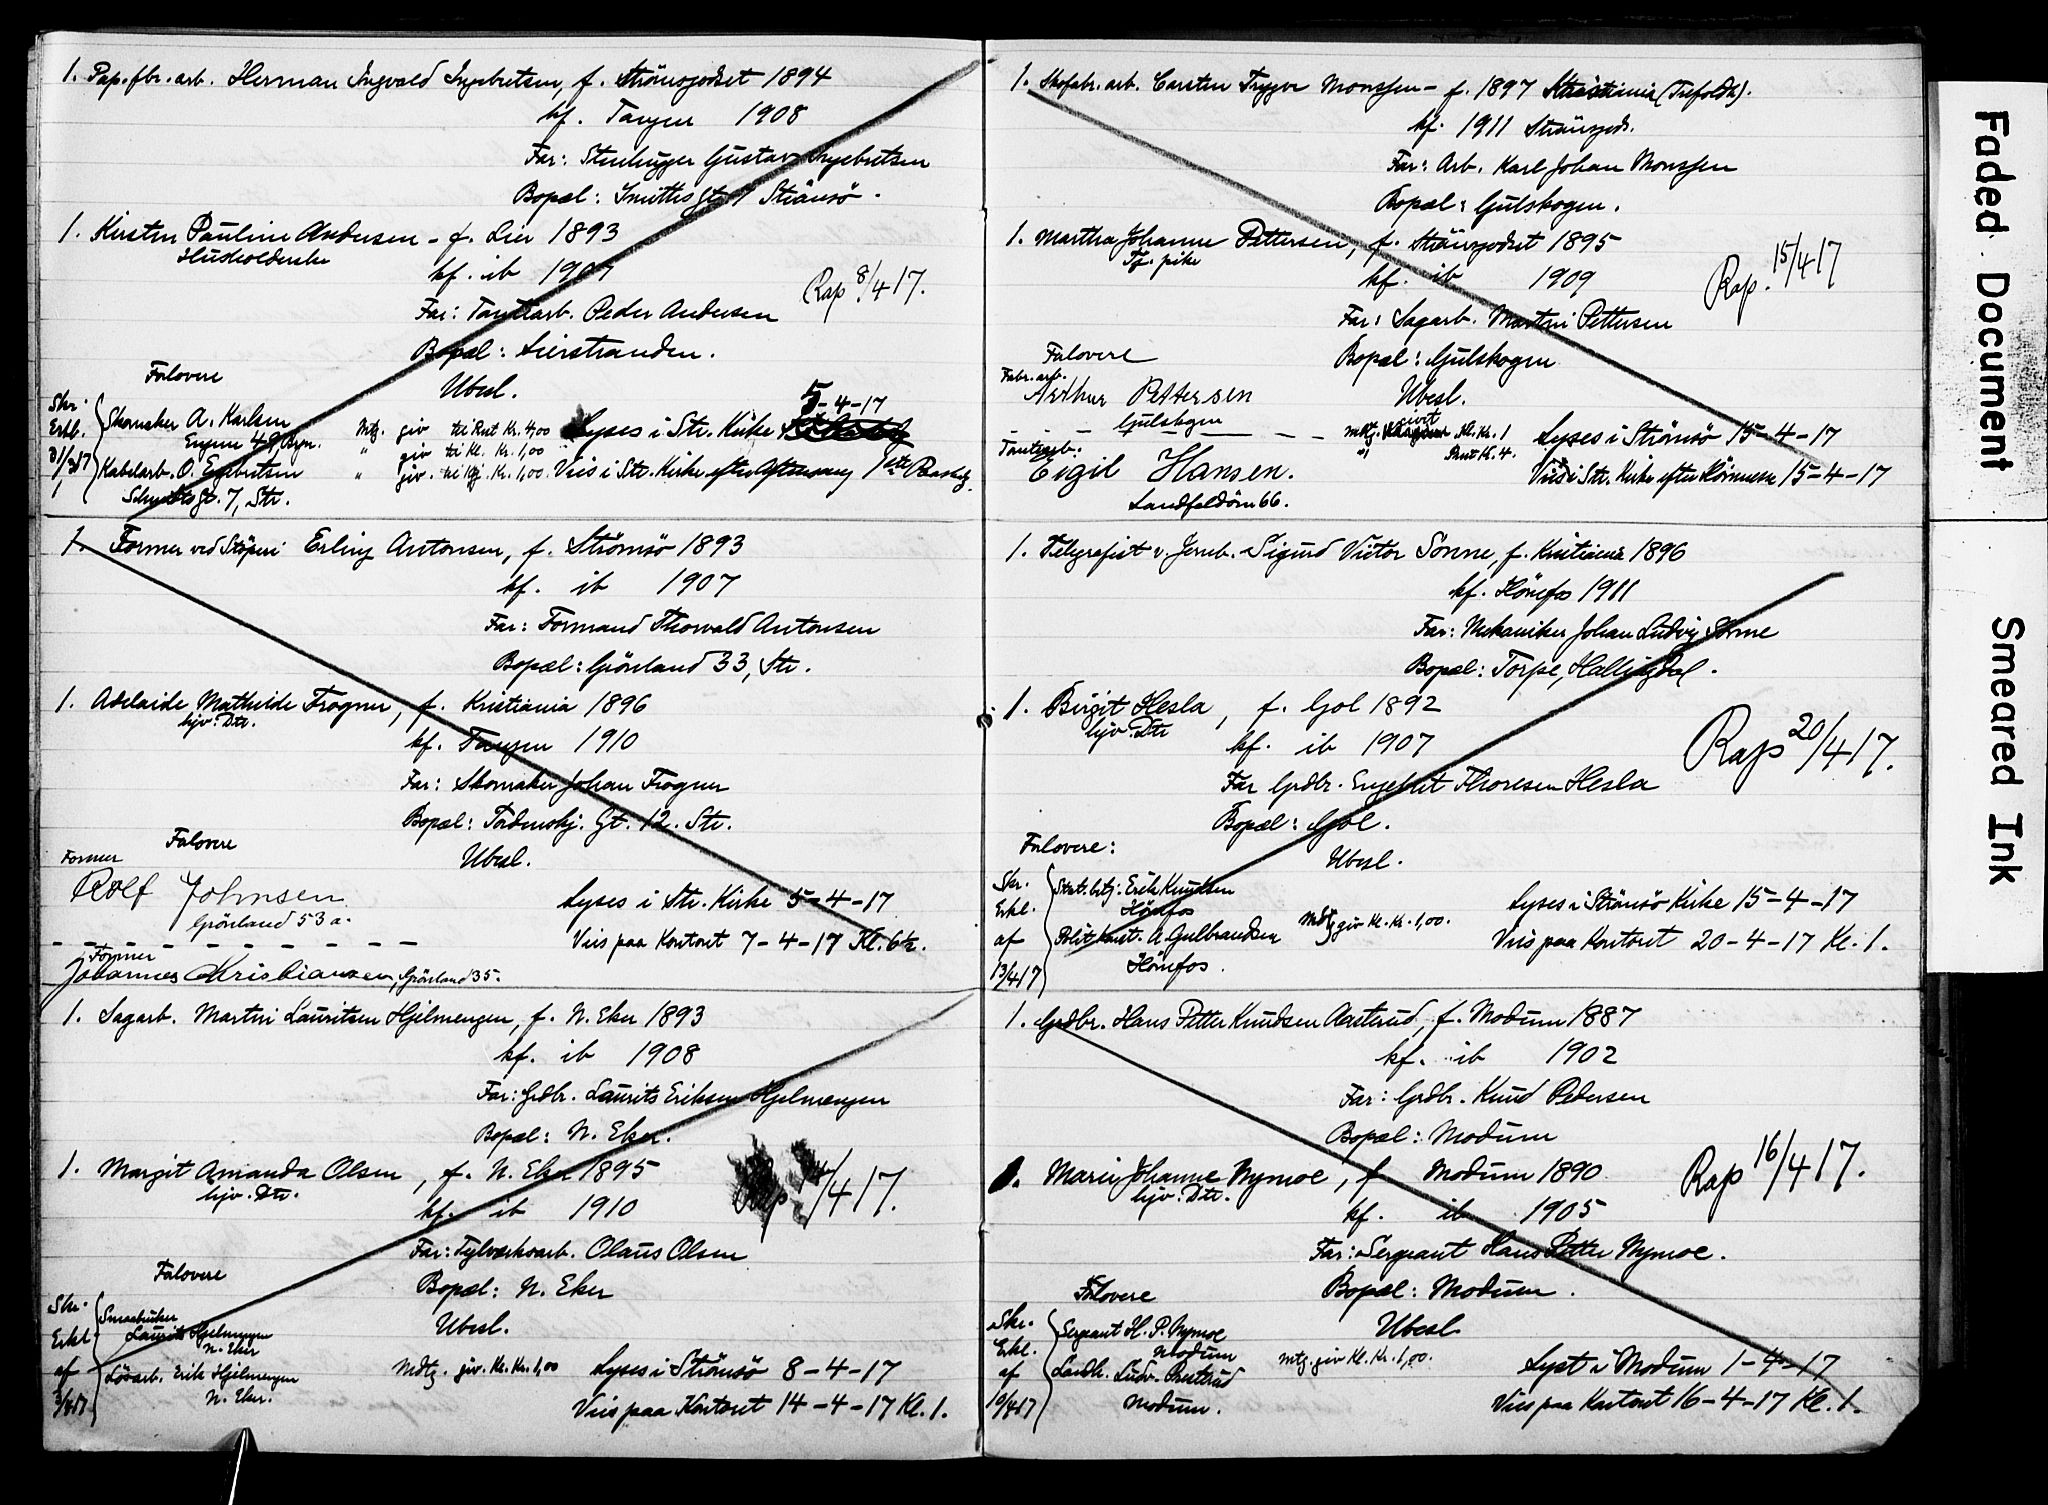 1. Pap.fbr.arb. Herman Ingvald Ingebretsen, f. Strömsgodset 1894
kf. Tangen 1908
Far: Stenhugger Gustav Ingebretsen
Bopæl: Smittsgt 7 Strömsö.
1. Kirsten Pauline Andersen - f. Lier 1893
Husholderske
kf. ib 1907
Rap 8/4 17.
Far: Tomtearb. Peder Andersen
Bopæl: Lierstranden.
Forlovere
Ubesl.
Skr. Erkl. 31/3 17
Skomaker A. Karlsen
Engene 49, Brgn.
Kabelarb. O. Engebretsen
Schmidts gt. 7, Str.
Mtg. giv til Rut Kr. 4,00
" giv til Kl. Kr. 1,00
" giv. til Kg. Kr. 1,00.
5-4-17
Lyses i Str. Kirke
Vies i Str. Kirke efter Aftensang 1ste Paaskedg.
1. Former ved Stöperi Erling Antonsen, f. Strömsö 1893
kf. ib 1907
Far: Formand Thorvald Antonsen
Bopæl: Grönland 33, Str.
1. Adelaide Mathilde Frogner, f. Kristiania 1896
hjv. Dtr.
kf. Tangen 1910
Far: Skomaker Johan Frogner
Bopæl: Tordenskj. Gt. 12. Str.
Forlovere
Ubesl.
Former
Rolf Johnsen
Grönland 53 a.
Lyses i Str. Kirke 5-4-17
Vies paa Kontoret 7-4-17 Kl. 6½.
Former
Johannes Kristiansen, Grönland 35.
1. Sagarb. Martin Lauritsen Hjelmengen, f. N. Eker 1893
kf. ib 1908
Far: Grdbr. Laurits Eriksen Hjelmengen
Bopæl: N. Eker.
1. Margit Amanda Olsen, f. N. Eker 1895
hjv. Dtr.
14/4 17.
kf. ib 1910
Far: Teglverksarb. Olaus Olsen
Bopæl: N. Eker
Forlovere
Ubesl.
Skr. Erkl. af 3/4 17
Smaabruker
Laurits Hjelmengen
N. Eker
Lösarb. Erik Hjelmengen
N. Eker.
Mdtg. giv. Kl. Kr. 1,00
Lyses i Strömsö 8-4-17
Vies paa Kontoret 14-4-17 Kl. 1.
1. Skofabr. arb. Carsten Trygve Monssen - f. 1897 Kristiania (Trefoldh).
kf. 1911 Strömsgods.
Far: Arb. Karl Johan Monssen
Bopæl: Gulskogen.
1. Martha Johanne Pettersen, f. Strömsgodset 1895
Tj. pike
kf. ib 1909
Rap. 15/4 17
Far: Sagarb. Martin Pettersen
Bopæl: Gulskogen
Forlovere
Ubesl.
Fabr. arb.
Arthur Pettersen
Gulskogen
mdtg. givet Kl. Kr. 1
" Rut Kr. 4.
Lyses i Strömsö 15-4-17
Tomtearb:
Eigil Hansen.
Landfaldöen 66.
Vies i Str. Kirke efter Höimesse 15-4-17
1. Telegrafist v. Jernb. Sigurd Victor Sonne, f. Kristiania 1896
kf. Hönefos 1911
Far: Mekaniker Johan Ludvig Sonne
Bopæl: Torpe, Hallingdal.
1. Birgit Hesla, f. Gol 1892
hjv. Dtr
kf. ib 1907
Rap 20/4 17.
Far Grdbr. Engebret Thoresen Hesla
Bopæl: Gol.
Forlovere:
Ubesl.
Skr. Erkl. af 13/4 17
Stat. betj. Erik Knutsen
Hönefos
Politikonst. A. Gulbrandsen
Hönefos.
Mdtg giv Kl. Kr. 1,00.
Lyses i Strömsö Kirke 15-4-17
Vies paa Kontoret 20-4-17 Kl. 1.
1. Grdbr. Hans Petter Knudsen Aastrud, f. Modum 1887
kf. ib 1902
Far: Grdbr. Knud Pedersen
Bopæl: Modum
1. Marie Johanne Nymoe, f Modum 1890
hjv. Dtr.
kf. ib 1905
Rap 16/4 17.
Far: Sergeant Hans Petter Nymoe.
Bopæl: Modum.
Forlovere
Ubesl
Skr. Erkl. af 10/4 17
Sergeant H. P. Nymoe
Modum
Landh. Ludv. Prestrud
Modum.
mtg. giv Kl. Kr. 1,00.
Lyst i Modum 1-4-17
Vies paa Kontoret 16-4-17 Kl. 1.
Faded Document
Smeared Ink